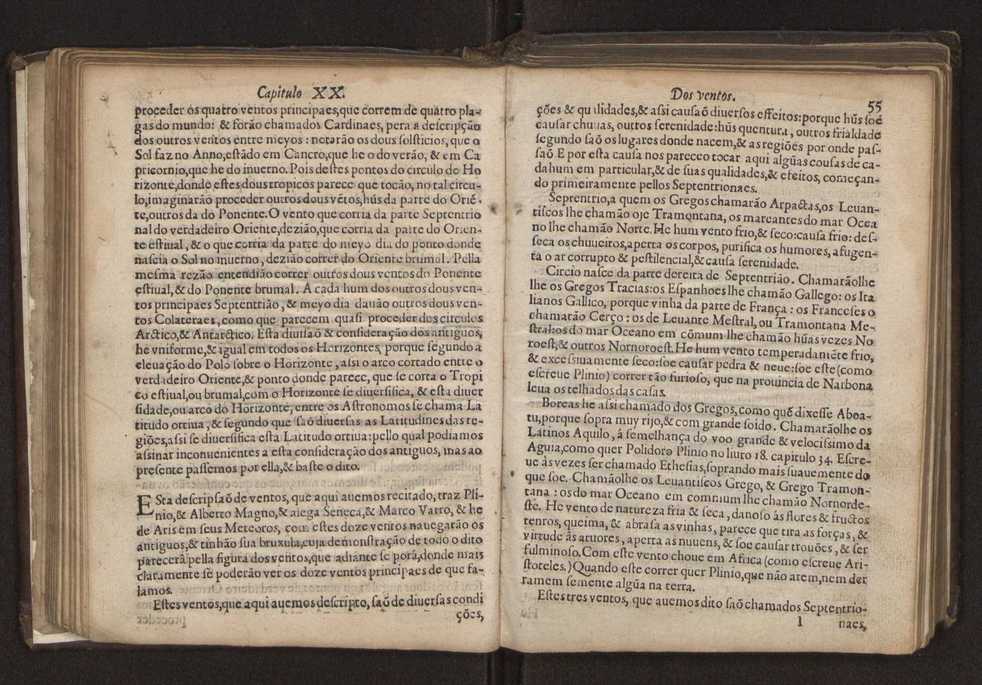 Capitulo XX.
proceder os quatro ventos principaes,que correm de quatro pla-
gas do mundo: & forão chamados Cardinaes, pera a descripção
dos outros ventos entre meyos: notarão os dous solsticios, que o
Sol faz no Anno,estãdo em Cancro,que he o do verão, & em Ca
pricornio,que he do inuerno. Pois destes pontos do circulo de Ho
rizonte,donde estes dous tropicos parece que tocão, no tal circu-
lo,imaginarão proceder outros dous vẽtos,hũs da parte do Oriẽ-
te,outros da do Ponente.O vento que corria da parte Septentrio
nal do verdadeiro Oriente,dezião,que corria da parte do Orien-
te estiual, & o que corria da parte do meyo dia do ponto donde
nascia o Sol no inuerno, dezião correr do Oriente brumal. Pella
mesma rezão entendião correr outros dous ventos do Ponente
estiual,& do Ponente brumal. A cada hum dos outros dous ven-
tos principaes Septentrião, & meyo dia dauão outros dous ven-
tos Colateraes, como que parecem quasi proceder dos circulos
Arctico,& Antarctico. Esta diuisaõ & consideração dos antiguos,
he vniforme,& igual em todos os Horizontes, porque segundo a
eleuação do Polo sobre o Horizonte, assi o arco cortado entre o
verdadeiro Oriente,& ponto donde parece, que se corta o Tropi
co estiual,ou brumal,com o Horizonte se diuersifica, & esta diuer
sidade,ou arco do Horizonte, entre os Astronomos se chama La
titudo ortiua, & segundo que saõ diuersas as Latitudines das re-
giões,assi se diuersifica esta Latitudo ortiua:pello qual podiamos
assinar inconuenientes a esta consideração dos antiguos, mas ao
presente passemos por ella,& baste o dito.
ESta descripsaõ de ventos, que aqui auemos recitado, traz Pli-
nio,& Alberto Magno,& alega Seneca,& Marco Varro, & he
de Aris em seus Meteoros, com estes doze ventos nauegarão os
antiguos,& tinhão sua bruxula,cuja demonstração de todo o dito
parecerà pella figura dos ventos,que adiante se porà,donde mais
claramente se poderão ver os doze ventos principaes de que fa-
lamos.
Estes ventos,que aqui auemos descripto, saõ de diuersas condi
ções,
Dos ventos.
55
ções & qualidades,& assi causaõ diuersos effeitos:porque hũs soẽ
causar chuuas, outros serenidade:hũs quentura, outros frialdade
segundo saõ os lugares donde nacem,& as regiões por onde pas-
saõ. E por esta causa nos pareceo tocar aqui algũas cousas de ca-
da hum em particular,& de suas qualidades,& efeitos, começan-
do primeiramente pellos Septentrionaes.
Septentrio,a quem os Gregos chamarão Arpactas,os Leuan-
tiscos lhe chamão oje Tramontana, os mareantes do mar Ocea
no lhe chamão Norte.He hum vento frio,& seco:causa frio: des-
seca os chuueiros,aperta os corpos, purifica os humores, afugen-
ta o ar corrupto & pestilencial,& causa serenidade.
Circio nasce da parte dereita de Septentrião. Chamarãolhe
lhe os Gregos Tracias:os Espanhoes lhe chamão Gallego: os Ita
lianos Gallico, porque vinha da parte de França : os Franceses o
chamarão Cerço : os de Leuante Mestral,ou Tramontana Me-
stral:os do mar Oceano em cõmum lhe chamão hũas vezes No
roest,& outros Nornoroest.He hum vento temperadamẽte frio,
& excessiuamente seco:soe causar pedra & neue:soe este (como
escreue Plinio) correr tão furioso, que na prouincia de Narbona
leua os telhados das casas.
Boreas he assi chamado dos Gregos,como quẽ dixesse Aboa-
tu,porque sopra muy rijo,& com grande soido. Chamarãolhe os
Latinos Aquilo, à semelhança do voo grande & velocissimo da
Aguia,como quer Polidoro Plinio no liuro 18. capitulo 34. Escre-
ue às vezes ser chamado Ethesias,soprando mais suauemente do
que soe. Chamãolhe os Leuantiscos Grego, & Grego Tramon-
tana : os do mar Oceano em commum lhe chamão Nornorde-
ste. He vento de natureza fria & seca, danoso às flores & fructos
tenros, queima, & abrasa as vinhas, parece que tira as forças, &
virtude às aruores, aperta as nuuens, & soe causar trouões, & ser
fulminoso.Com este vento choue em Africa (como escreue Ari-
stoteles.) Quando este correr quer Plinio,que não atem,nem der
ramem semente algũa na terra.
Estes tres ventos, que auemos dito saõ chamados Septentrio-
I naes,